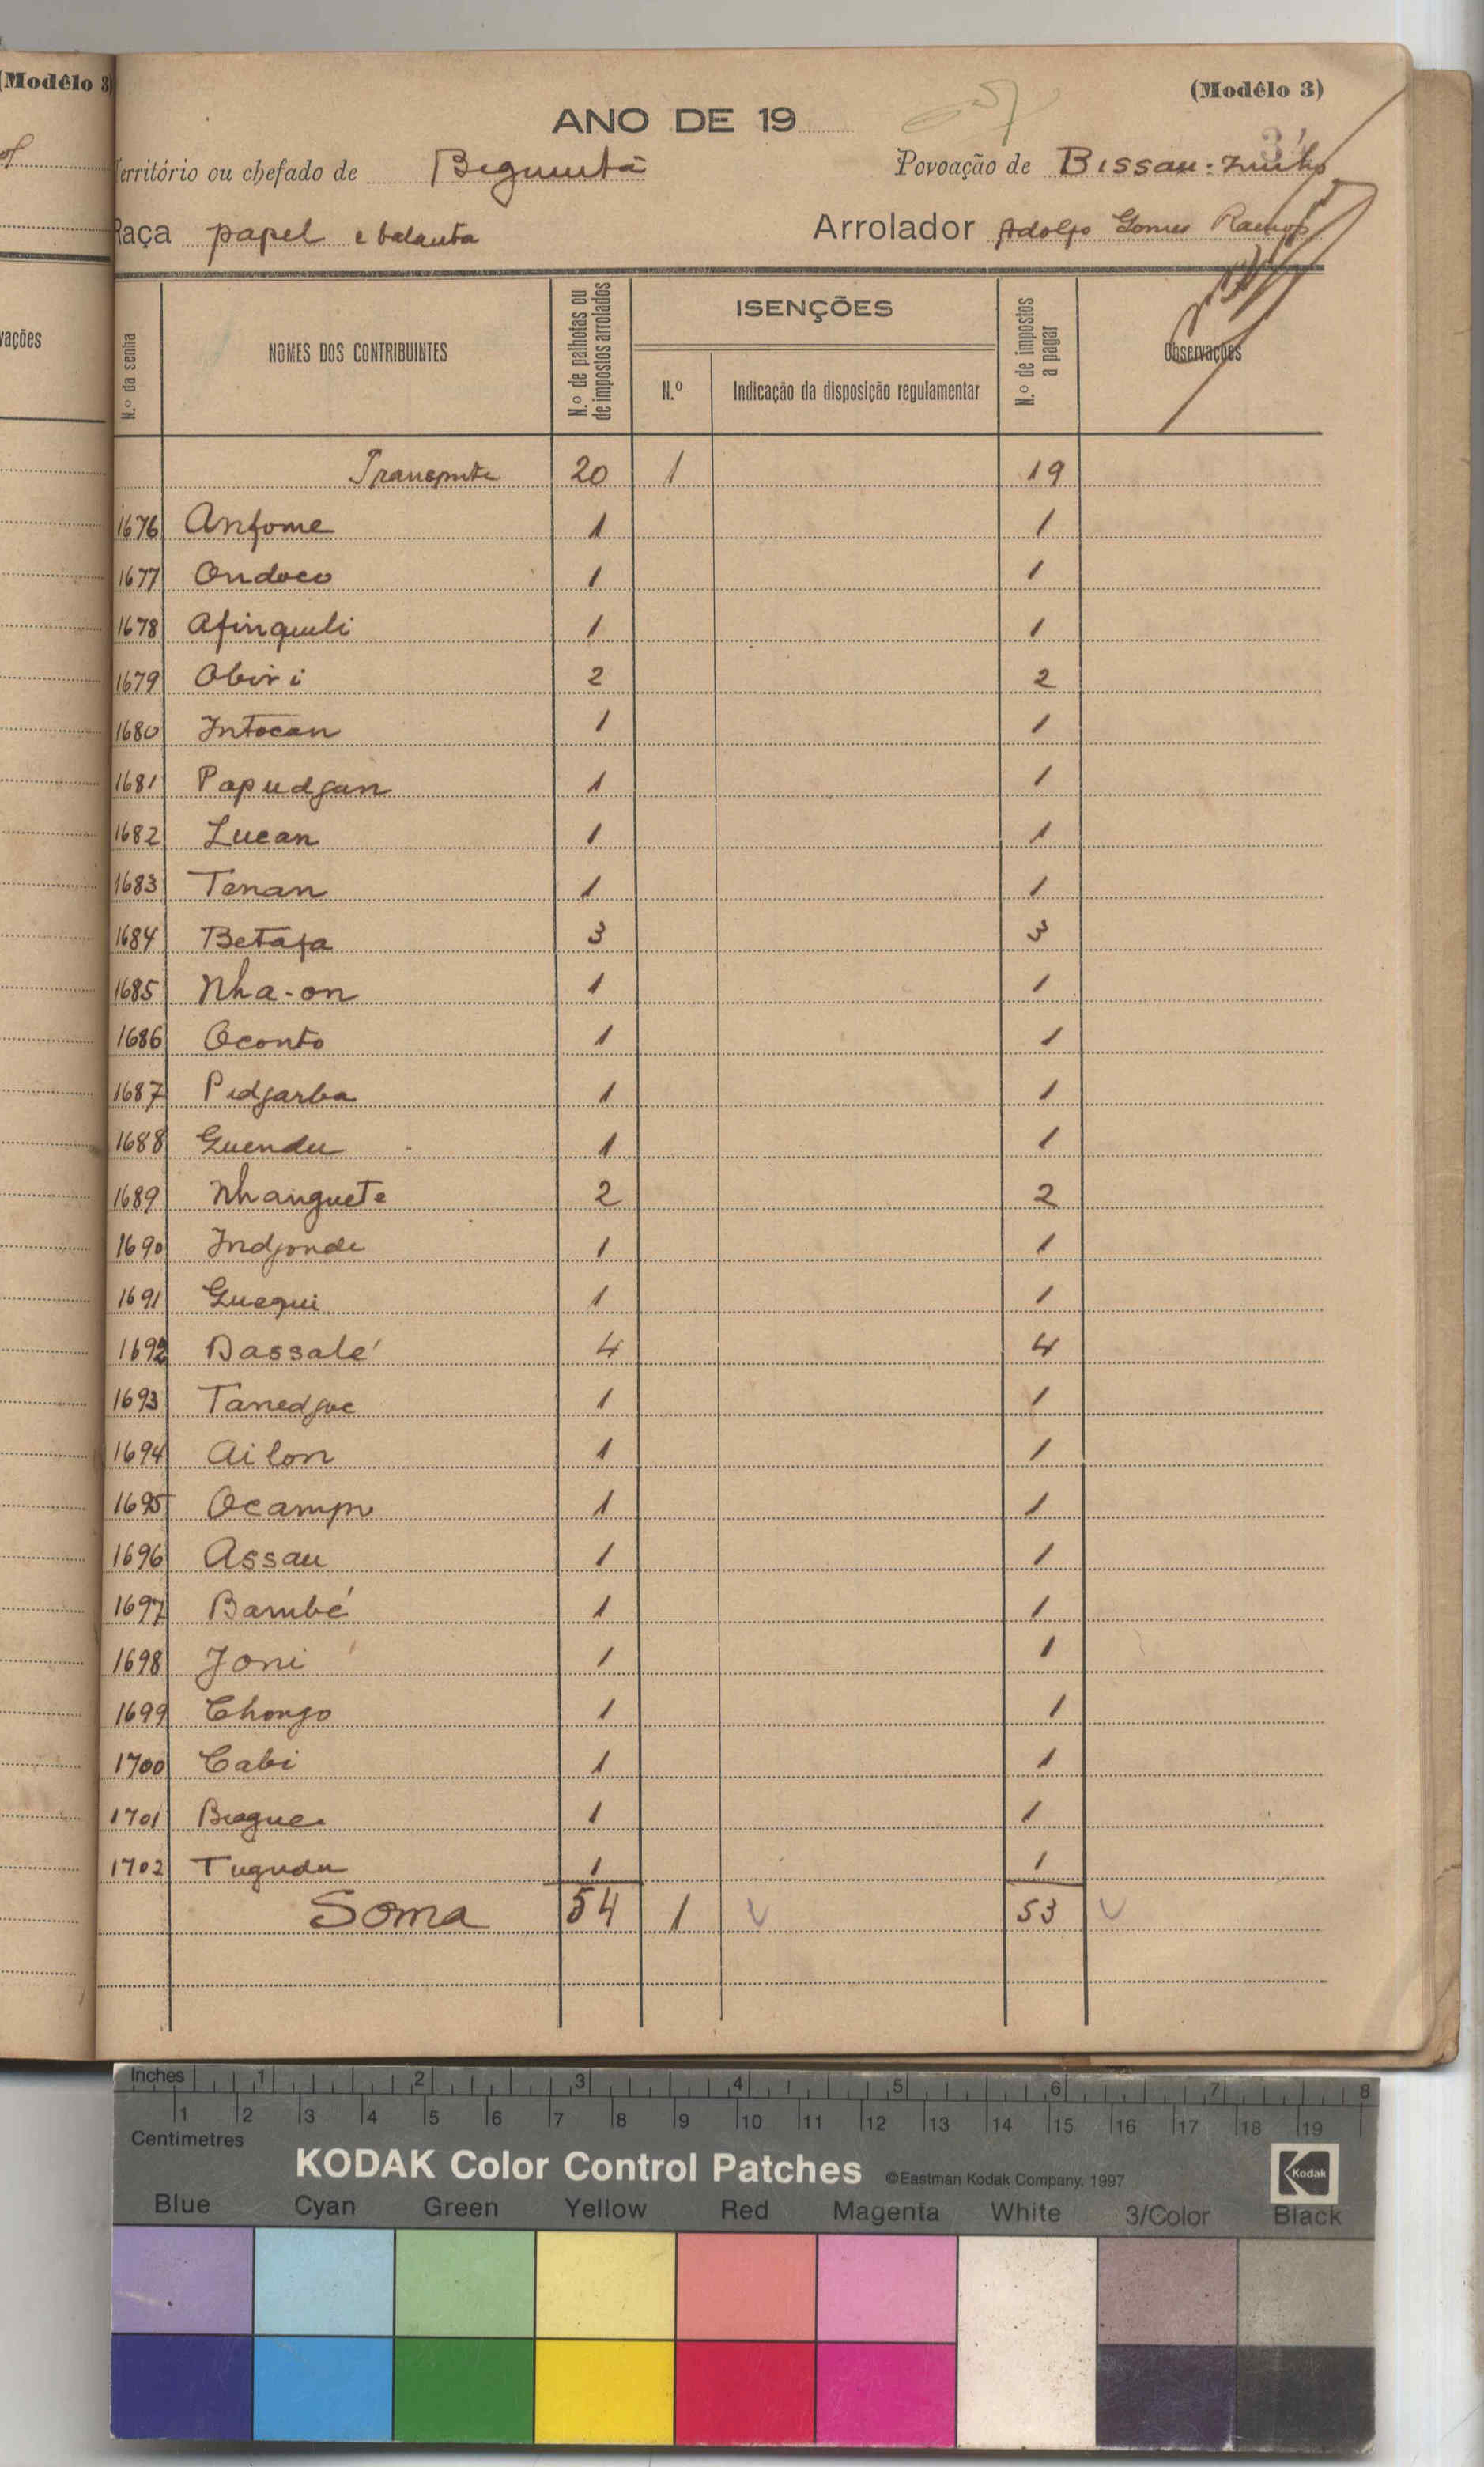 (Modêlo 3)
(Modêlo 3)
ANO DE 19
Território ou chefado de Biguimtã
Povoação de Bissau-zinho
Raça papel e balanta
Arrolador Adolfo Gomes Ramos
vações
N.º da senha
NOMES DOS CONTRIBUINTES
N.º de palhotas ou de impostos arrolados
ISENÇÕES
N.º
Indicação da disposição regulamentar
N.º de impostos a pagar
Observações
Transporte 20 1 19
1676 Anfome 1 1
1677 Ondoco 1 1
1678 Afinqueli 1 1
1679 Obiri 2 2
1680 Intocan 1 1
1681 Papudjan 1 1
1682 Lucan 1 1
1683 Tenan 1 1
1684 Betafa 3 3
1685 Nha-on 1 1
1686 Oconto 1 1
1687 Pidjarba 1 1
1688 Guendu 1 1
1689 Nhanguete 2 2
1690 Indjonde 1 1
1691 Guequi 1 1
1692 Dassalé 4 4
1693 Tanedjoe 1 1
1694 Ailon 1 1
1695 Ocampo 1 1
1696 Assau 1 1
1697 Bambé 1 1
1698 Joni 1 1
1699 Chongo 1 1
1700 Cabi 1 1
1701 1 1
1702 Tugudu 1 1
Soma 54 1 53
Inches 1 2 3 4 5 6 7 8
1 2 3 4 5 6 7 8 9 10 11 12 13 14 15 16 17 18 19
Centimetres
KODAK Color Control Patches ©Eastman Kodak Company, 1997 Kodak
Blue Cyan Green Yellow Red Magenta White 3/Color Black